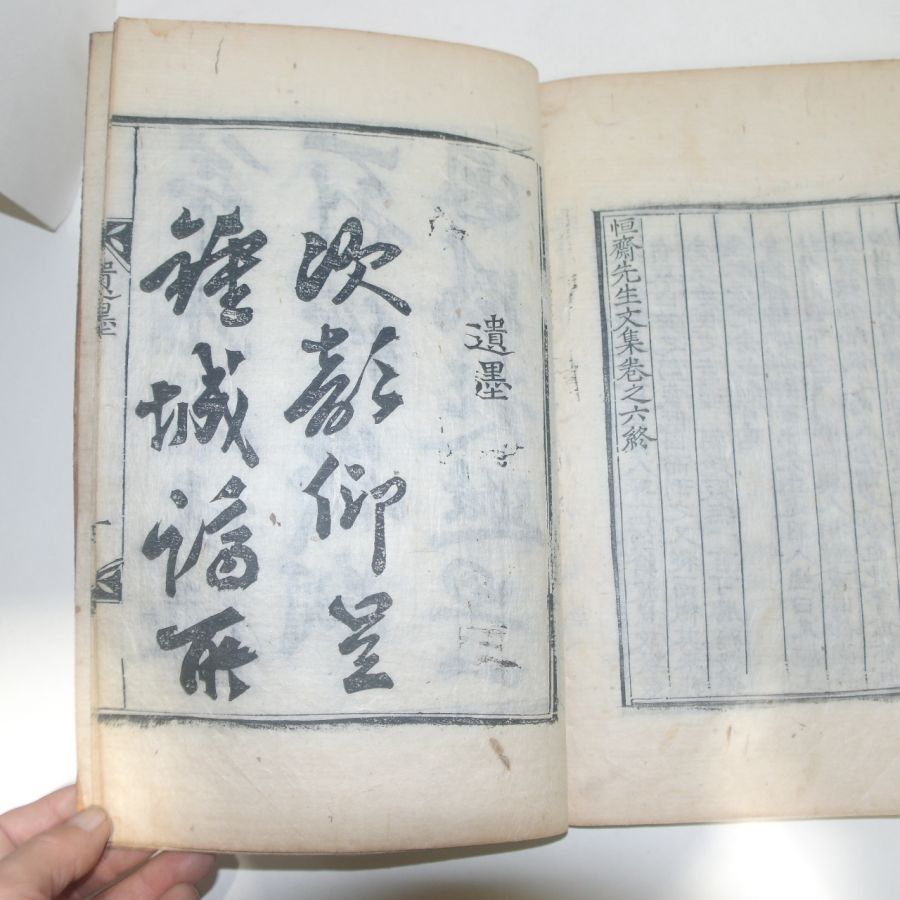 恒齋先生文集卷之六終
遺墨
次韻仰呈
鍾城謫所
遺墨